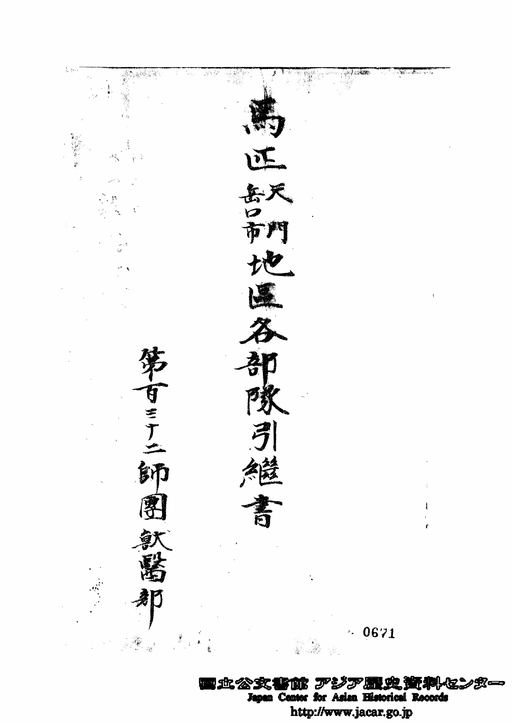 馬匹天門岳口市地區各部隊引繼書
第百三十二師團獸醫部
0671
國立公文書館 アジア歴史資料センター
Japan Center for Asian Historical Records
http://www.jacar.go.jp